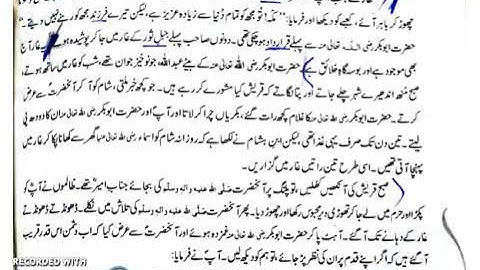 چھوڑ کر باہر آئے، کعبے کو دیکھا اور فرمایا: ’’مکّہ! تو مجھ کو تمام دُنیا سے زیادہ عزیز ہے، لیکن تیرے فرزند مجھ کو رہنے نہیں دیتے۔‘‘
حضرت ابوبکر رضی اللہ تعالیٰ عنہ سے پہلے قرارداد ہو چکی تھی۔ دونوں صاحب پہلے جبلِ ثور کے غار میں جا کر پوشیدہ ہوئے۔ یہ غار آج
بھی موجود ہے اور بوسہ گاہِ خلائق ہے۔ حضرت ابوبکر رضی اللہ تعالیٰ عنہ کے بیٹے عبداللہ، جو نوخیز جوان تھے، شب کو غار میں ساتھ ہوتے،
صبح منہ اندھیرے شہر چلے جاتے اور پتا لگاتے کہ قریش کیا مشورے کر رہے ہیں۔ جو کچھ خبر ملتی، شام کو آ کر آنحضرت سے عرض
کرتے۔ حضرت ابوبکر رضی اللہ تعالیٰ عنہ کا غلام کچھ رات گئے، بکریاں چرا کر لاتا اور آپ اور حضرت ابوبکر رضی اللہ تعالیٰ عنہ ان کا دودھ پی
لیتے۔ تین دن تک صرف یہی غذا تھی، لیکن ابنِ ہشام نے لکھا ہے کہ روزانہ شام کو اسماء رضی اللہ تعالیٰ عنہا گھر سے کھانا پکا کر غار میں
پہنچا آتی تھیں۔ اسی طرح تین راتیں غار میں گزاریں۔
صبح قریش کی آنکھیں کھلیں، تو پلنگ پر آنحضرت صلی اللہ علیہ وآلہ وسلم کی بجائے جناب امیر تھے۔ ظالموں نے آپ کو
پکڑا اور حرم میں لے جا کر تھوڑی دیر محبوس رکھا اور چھوڑ دیا۔ پھر آنحضرت صلی اللہ علیہ وآلہ وسلم کی تلاش میں نکلے۔ ڈھونڈتے ڈھونڈتے
غار کے دہانے تک آ گئے۔ آہٹ پا کر حضرت ابوبکر رضی اللہ تعالیٰ عنہ غمزدہ ہوئے اور آنحضرت سے عرض کیا کہ اب دشمن اس قدر قریب
آ گئے ہیں کہ اگر اپنے قدم پر ان کی نظر پڑ جائے، تو ہم کو دیکھ لیں گے۔ آپ نے فرمایا:
RECORDED WITH